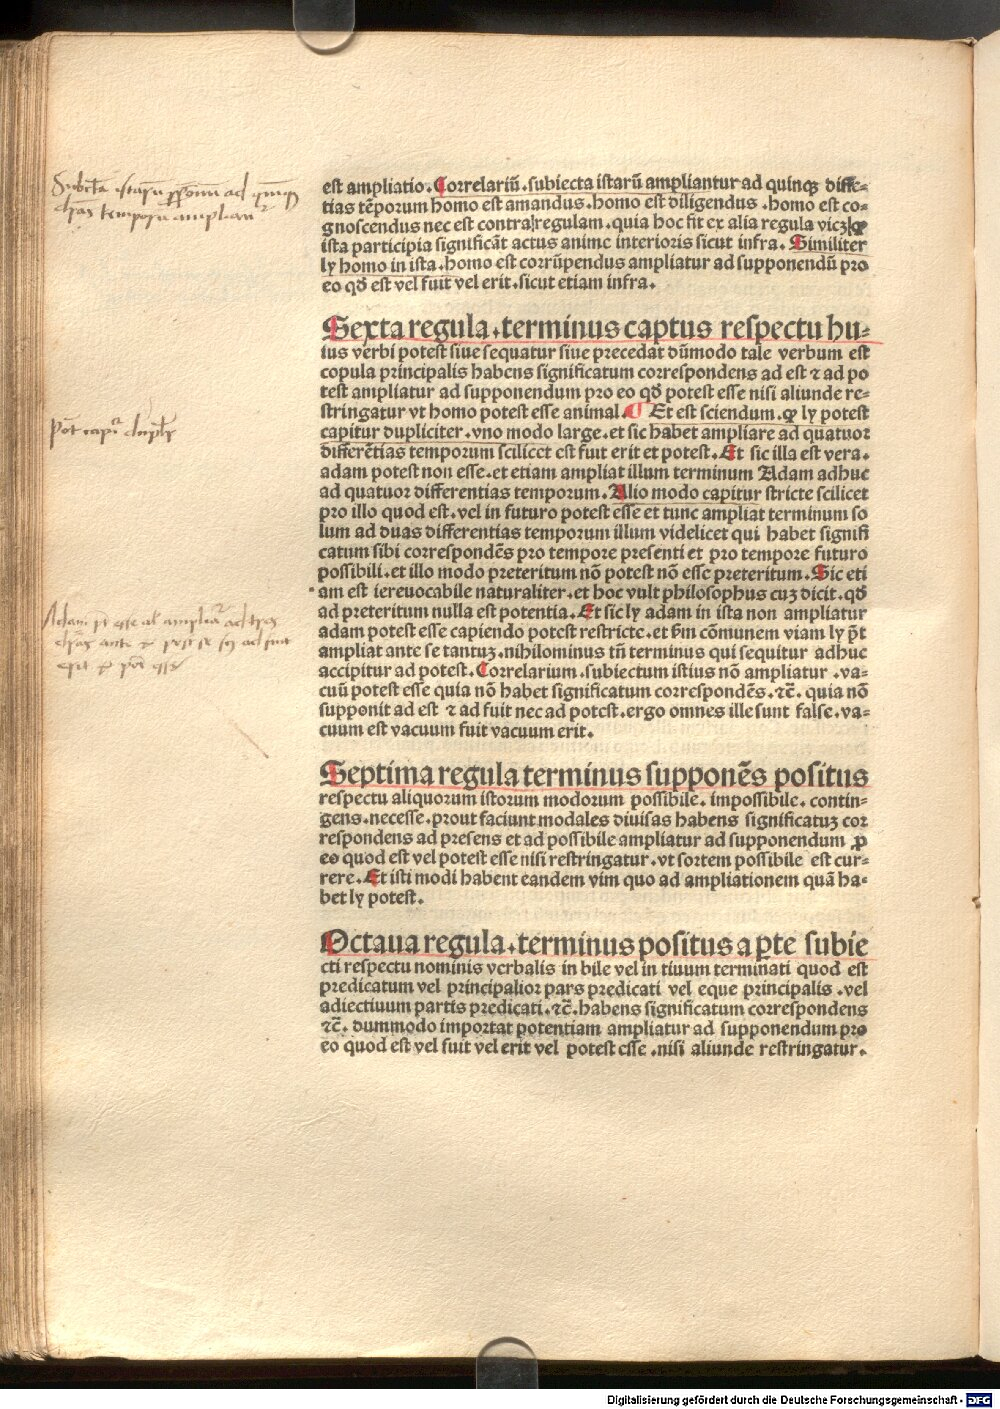 est ampliatio. Correlariū. subiecta istarū ampliantur ad quinqȝ diffe-
tias tēporum homo est amandus. homo est diligendus. homo est co-
gnoscendus nec est contra regulam. quia hoc fit ex alia regula viczꝙ
ista participia significāt actus anime interioris sicut infra. Similiter
ly homo in ista. homo est corrūpendus ampliatur ad supponendū pro
eo qđ est vel fuit vel erit. sicut etiam infra.
Sexta regula. terminus captus respectu hu-
ius verbi potest siue sequatur siue precedat dūmodo tale verbum est
copula principalis habens significatum correspondens ad est ⁊ ad po
test ampliatur ad supponendum pro eo qđ potest esse nisi aliunde re-
stringatur vt homo potest esse animal. ¶ Et est sciendum. ꝙ ly potest
capitur dupliciter. vno modo large. et sic habet ampliare ad quatuor
differētias temporum scilicet est fuit erit et potest. Et sic illa est vera.
adam potest non esse. et etiam ampliat illum terminum Adam adhuc
ad quatuor differentias temporum. Alio modo capitur stricte scilicet
pro illo quod est. vel in futuro potest esse et tunc ampliat terminum so
lum ad duas differentias temporum illum videlicet qui habet signifi
catum sibi correspondēs pro tempore presenti et pro tempore futuro
possibili. et illo modo preteritum nō potest nō esse preteritum. Sic eti
am est iereuocabile naturaliter. et hoc vult philosophus cuȝ dicit. qđ
ad preteritum nulla est potentia. Et sic ly adam in ista non ampliatur
adam potest esse capiendo potest restricte. et ẜm cōmunem viam ly p̄t
ampliat ante se tantuȝ. nihilominus tn̄ terminus qui sequitur adhuc
accipitur ad potest. Correlarium. subiectum istius nō ampliatur. va-
cuū potest esse quia nō habet significatum correspondēs. ⁊c̄. quia nō
supponit ad est ⁊ ad fuit nec ad potest. ergo omnes ille sunt false. va-
cuum est vacuum fuit vacuum erit.
Septima regula terminus supponēs positus
respectu aliquorum istorum modorum possibile. impossibile. contin-
gens. necesse. prout faciunt modales diuisas habens significatuȝ cor
respondens ad presens et ad possibile ampliatur ad supponendum ꝓ
eo quod est vel potest esse nisi restringatur. vt sortem possibile est cur-
rere. Et isti modi habent eandem vim quo ad ampliationem quā ha-
bet ly potest.
Octaua regula. terminus positus a ꝑte subie
cti respectu nominis verbalis in bile vel in tiuum terminati quod est
predicatum vel principalior pars predicati vel eque principalis. vel
adiectiuum partis predicati. ⁊c̄. habens significatum correspondens
⁊c̄. dummodo importat potentiam ampliatur ad supponendum pro
eo quod est vel fuit vel erit vel potest esse. nisi aliunde restringatur.
Digitalisierung gefördert durch die Deutsche Forschungsgemeinschaft - DFG